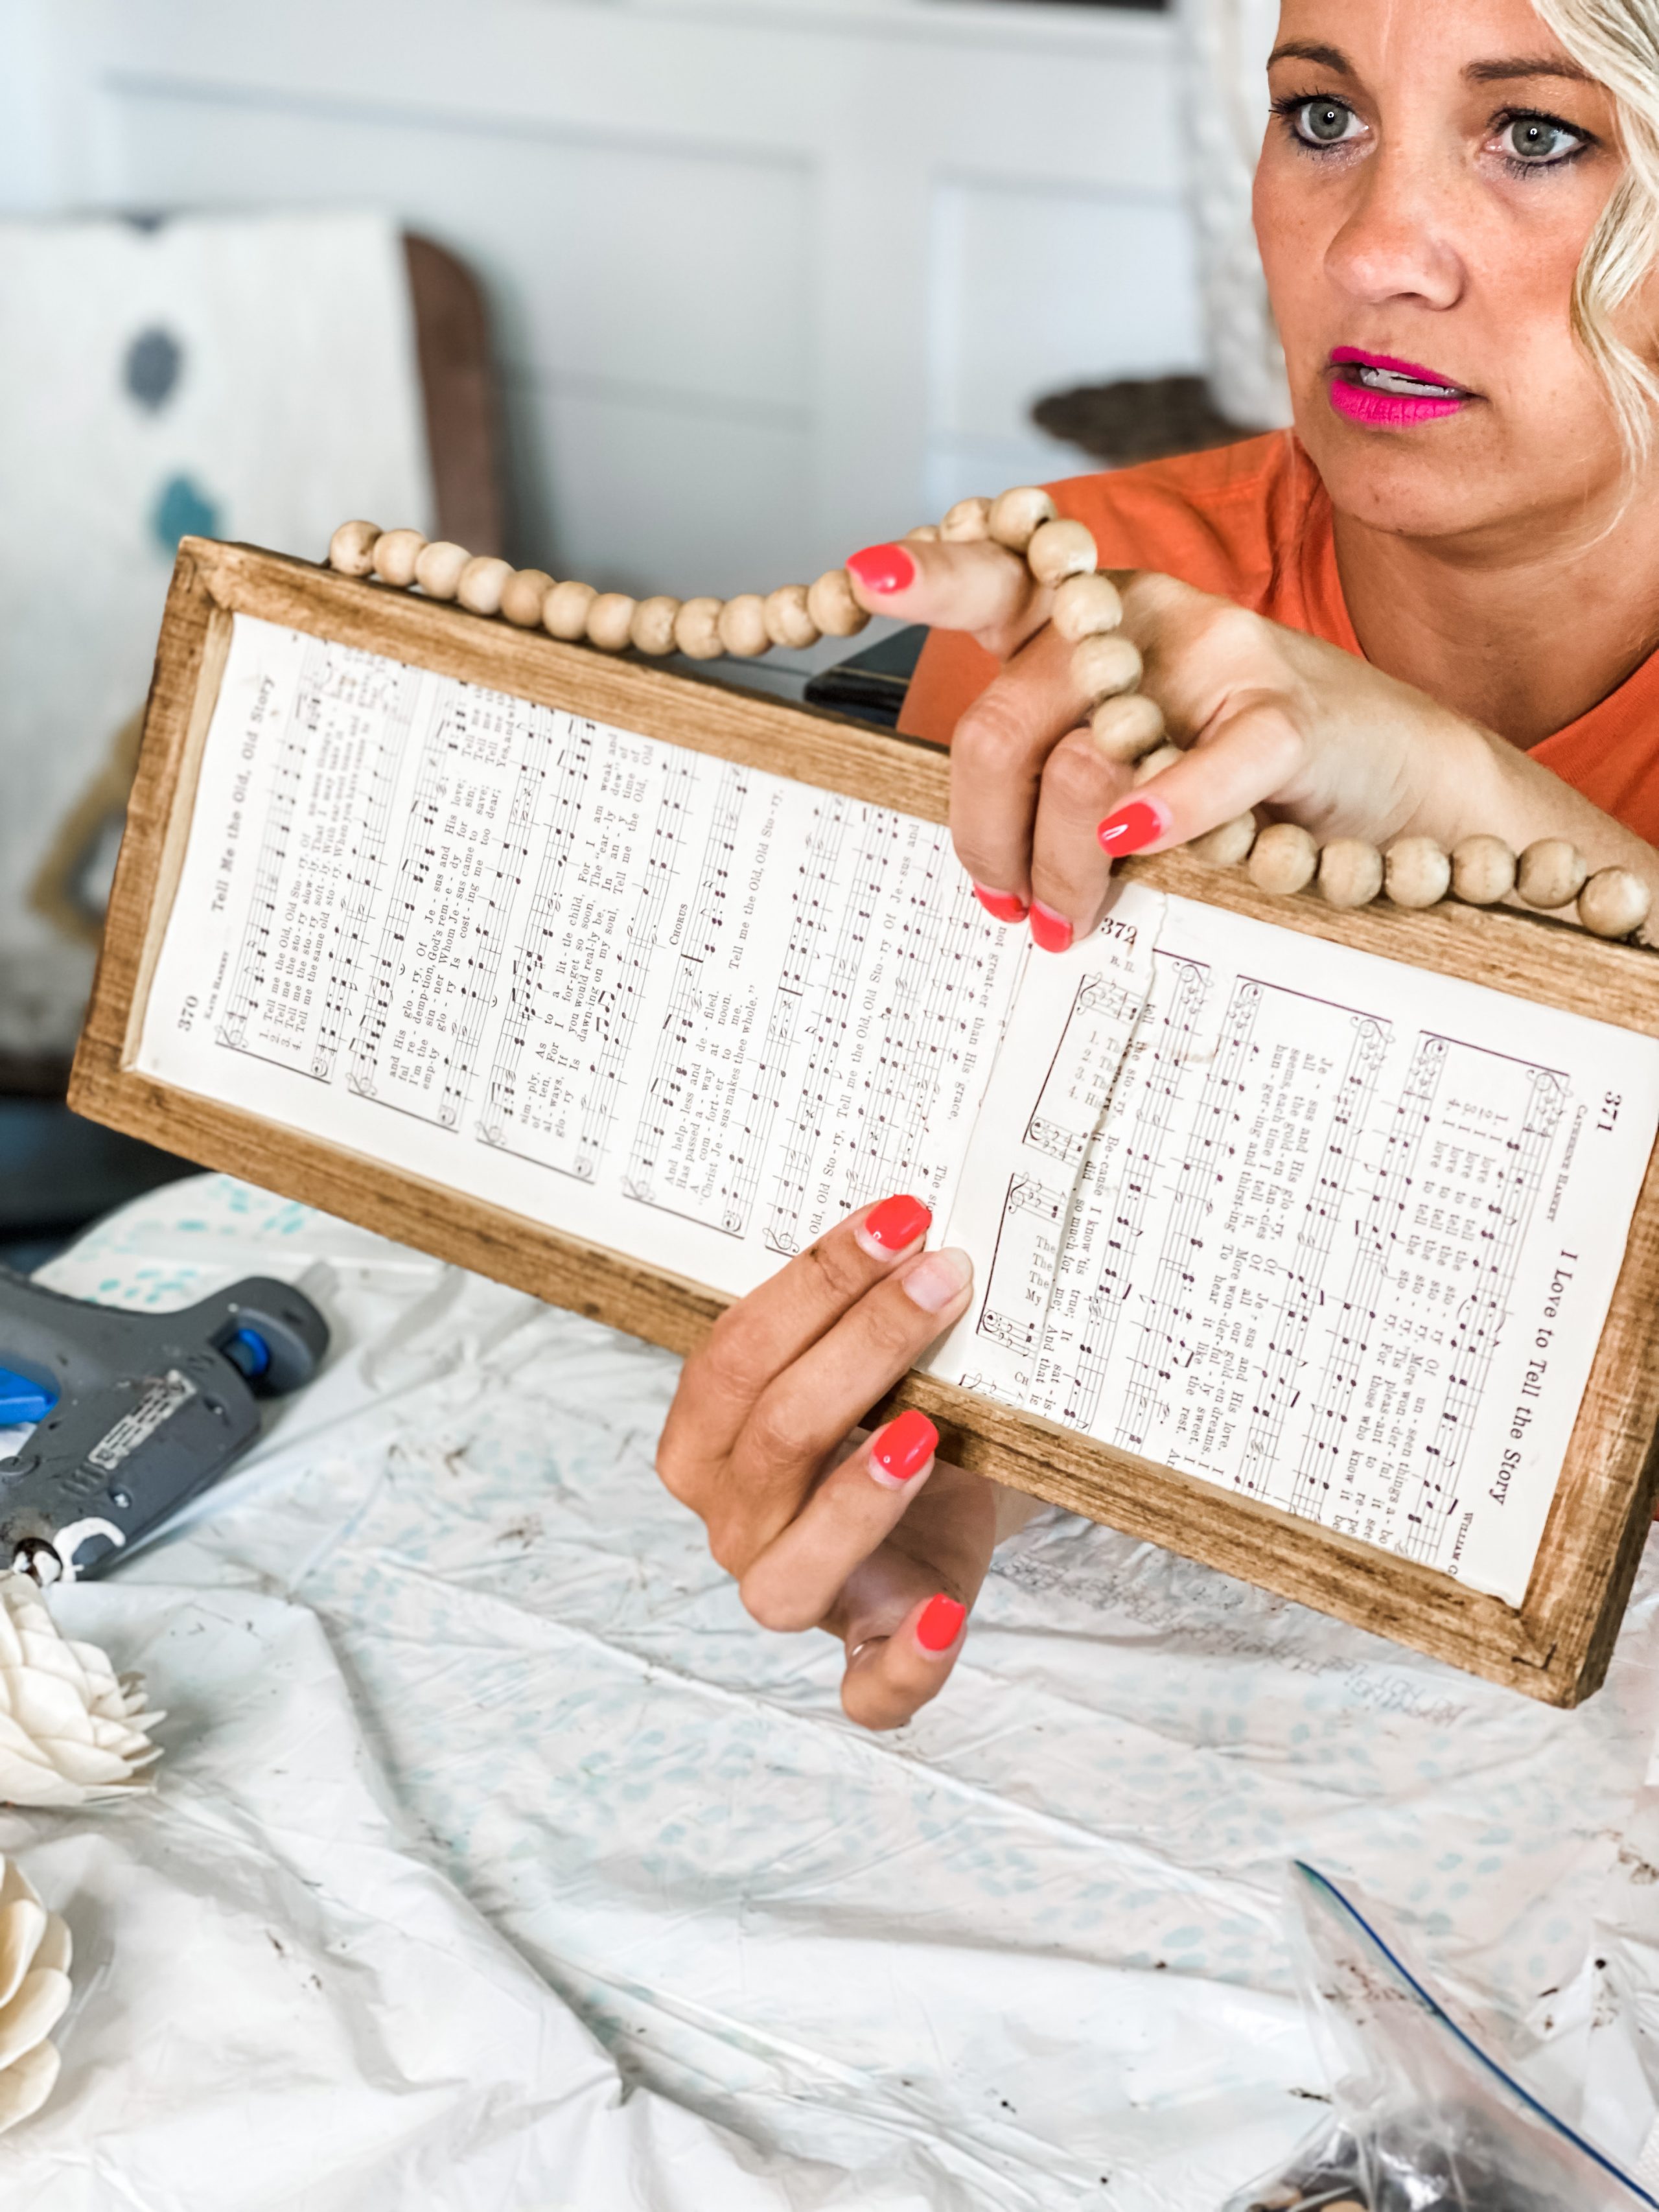 370
Tell Me the Old, Old Story
KATE HANKEY
1. Tell me the Old, Old Sto - ry, Of un-seen things a -
2. Tell me the sto - ry slow - ly, That I may take it
3. Tell me the sto - ry soft - ly, With ear-nest tones and
4. Tell me the same old sto - ry, When you have cause to
and His glo - ry, Of Je - sus and His love;
ful re - demp-tion, God's rem - e - dy for sin;
I'm the sin - ner Whom Je - sus came to save;
emp-ty glo - ry Is cost - ing me too dear;
Tell me
Tell me
Tell me
Yes, and
sim - ply, As to a lit - tle child, For I am weak and
of - ten, For I for-get so soon, The "ear - ly dew" of
al - ways, If you would real-ly be, In an - y time of
glo - ry Is dawn-ing on my soul, Tell me the Old, Old
CHORUS
And help - less and de - filed.
Has passed a - way at noon.
A com - fort - er to me.
Christ Je - sus makes thee whole."
Tell me the Old, Old Sto - ry,
Old, Old Sto - ry, Tell me the Old, Old Sto - ry Of Je - sus and
not great-er than His grace,
372
R. H.
1.
2.
3.
4.
The
The
The
My
371
I Love to Tell the Story
CATHERINE HANKEY
WILLIAM G
1. I love to tell the sto - ry Of un - seen things a - bo
love to tell the sto - ry, More won - der - ful it see
love to tell the sto - ry, 'Tis pleas - ant to re - pe
4. I love to tell the sto - ry, For those who know it be
Je - sus and His glo - ry, Of Je - sus and His love. I
all the gold - en fan - cies Of all our gold - en dreams. I
seems, each time I tell it, More won - der - ful - ly sweet. I
hun - ger - ing and thirst - ing To hear it like the rest. A
tell the sto - ry, Be - cause I know 'tis true; It sat - is -
it did so much for me; And that is